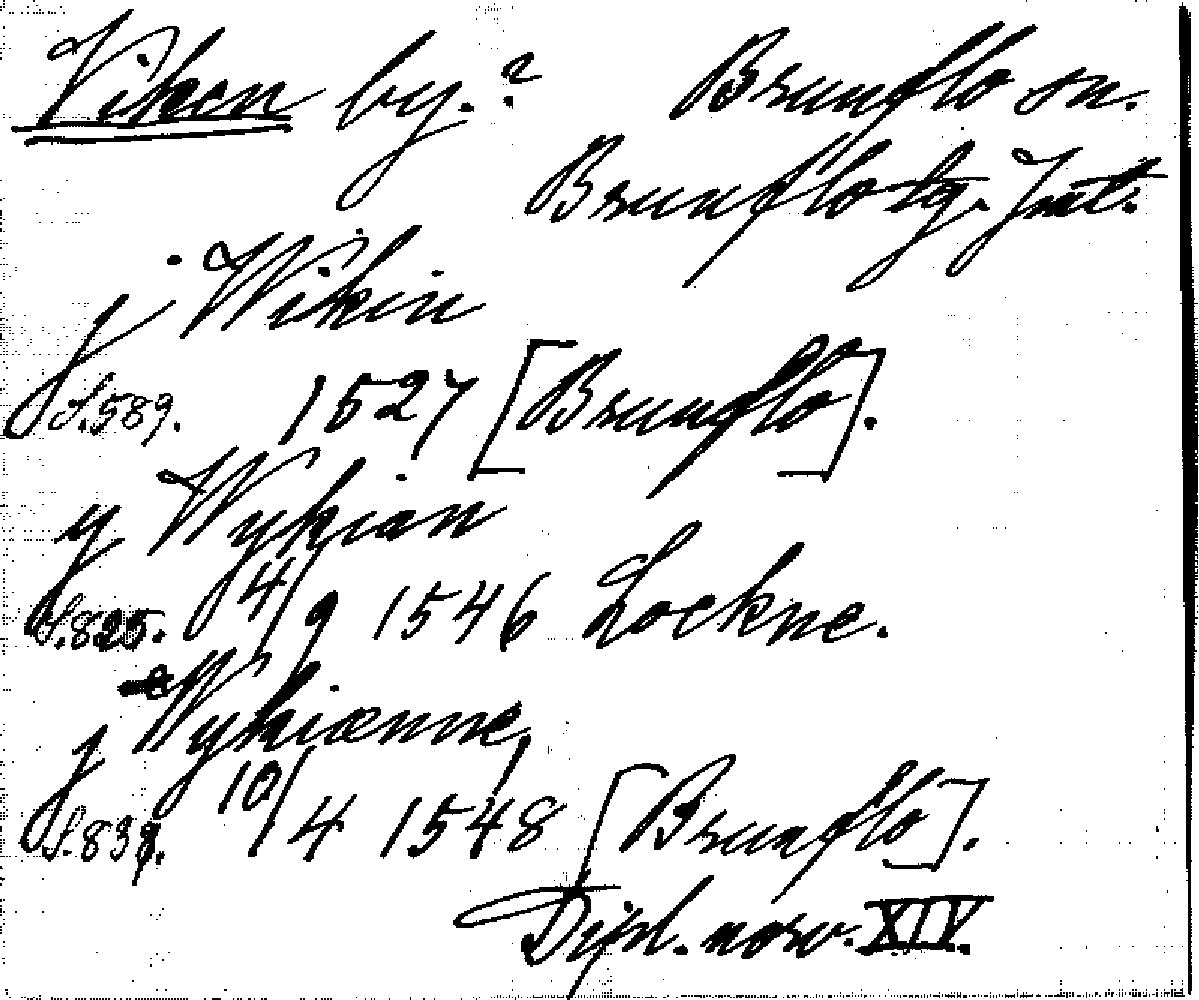 Viken by.? Brunflo sn.
Brunflo tg. Jmt.
j Wikin
S.589. 1527 [Brunflo].
y Wykian
S.825. 4/9 1546 Lockne.
j Wykiænne,
S.839. 10/4 1548 [Brunflo].
Dipl. norv. XIV.